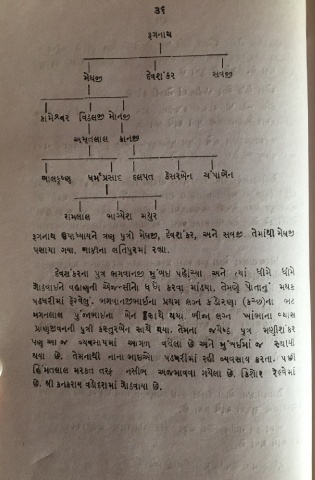 ૩૬
રૂગનાથ
મેઘજી દેવશંકર સવજી
કામેશ્વર વિઠલજી મોનજી
અમૃતલાલ કાનજી
બાલકૃષ્ણ ધર્મપ્રસાદ દલપત કેસરબેન ચંપાબેન
રામલાલ ભાગ્યેશ મયુર
રૂગનાથ ઉપાધ્યાયને ત્રણ પુત્રો મેઘજી, દેવશંકર, અને સવજી. તેમાંથી મેઘજી
પસાયા ગયા. બાકીના લતિપુરમાં રહ્યા.
દેવશંકરના પુત્ર ભગવાનજી મુંબઇ પહોંચ્યા અને ત્યાં ધીમે ધીમે
ગોઠવાઇને વહાણની એજન્સીનો ધંધો કરવા માંડયા. તેમણે પોતાનું મથક
પઢધરીમાં ફેરવેલું. ભગવાનજીભાઇના પ્રથમ લગ્ન કંઠોરણા (કચ્છ)ના ભટ
મગનલાલ પુંજાભાઇના બેન સાથે થયા. બીજા લગ્ન ખાંભાના વ્યાસ
પ્રાણજીવનની પુત્રી કસ્તુરબેન સાથે થયા. તેમના જયેષ્ઠ પુત્ર મણીશંકર
પણ આ જ વ્યવસાયમાં આગળ વધેલા છે અને મુંબઇમાં જ સ્થાયી
થયા છે. તેમનાથી નાના ભાઇઓ પઢધરીમાં રહી વ્યવસાય કરતા. પછી
હિંમતલાલ મસ્કત તરફ નસીબ અજમાવવા ગયેલા છે. કિશોર રેલ્વેમાં
છે. શ્રી કનકરાય વડોદરામાં ગોઠવાયા છે.